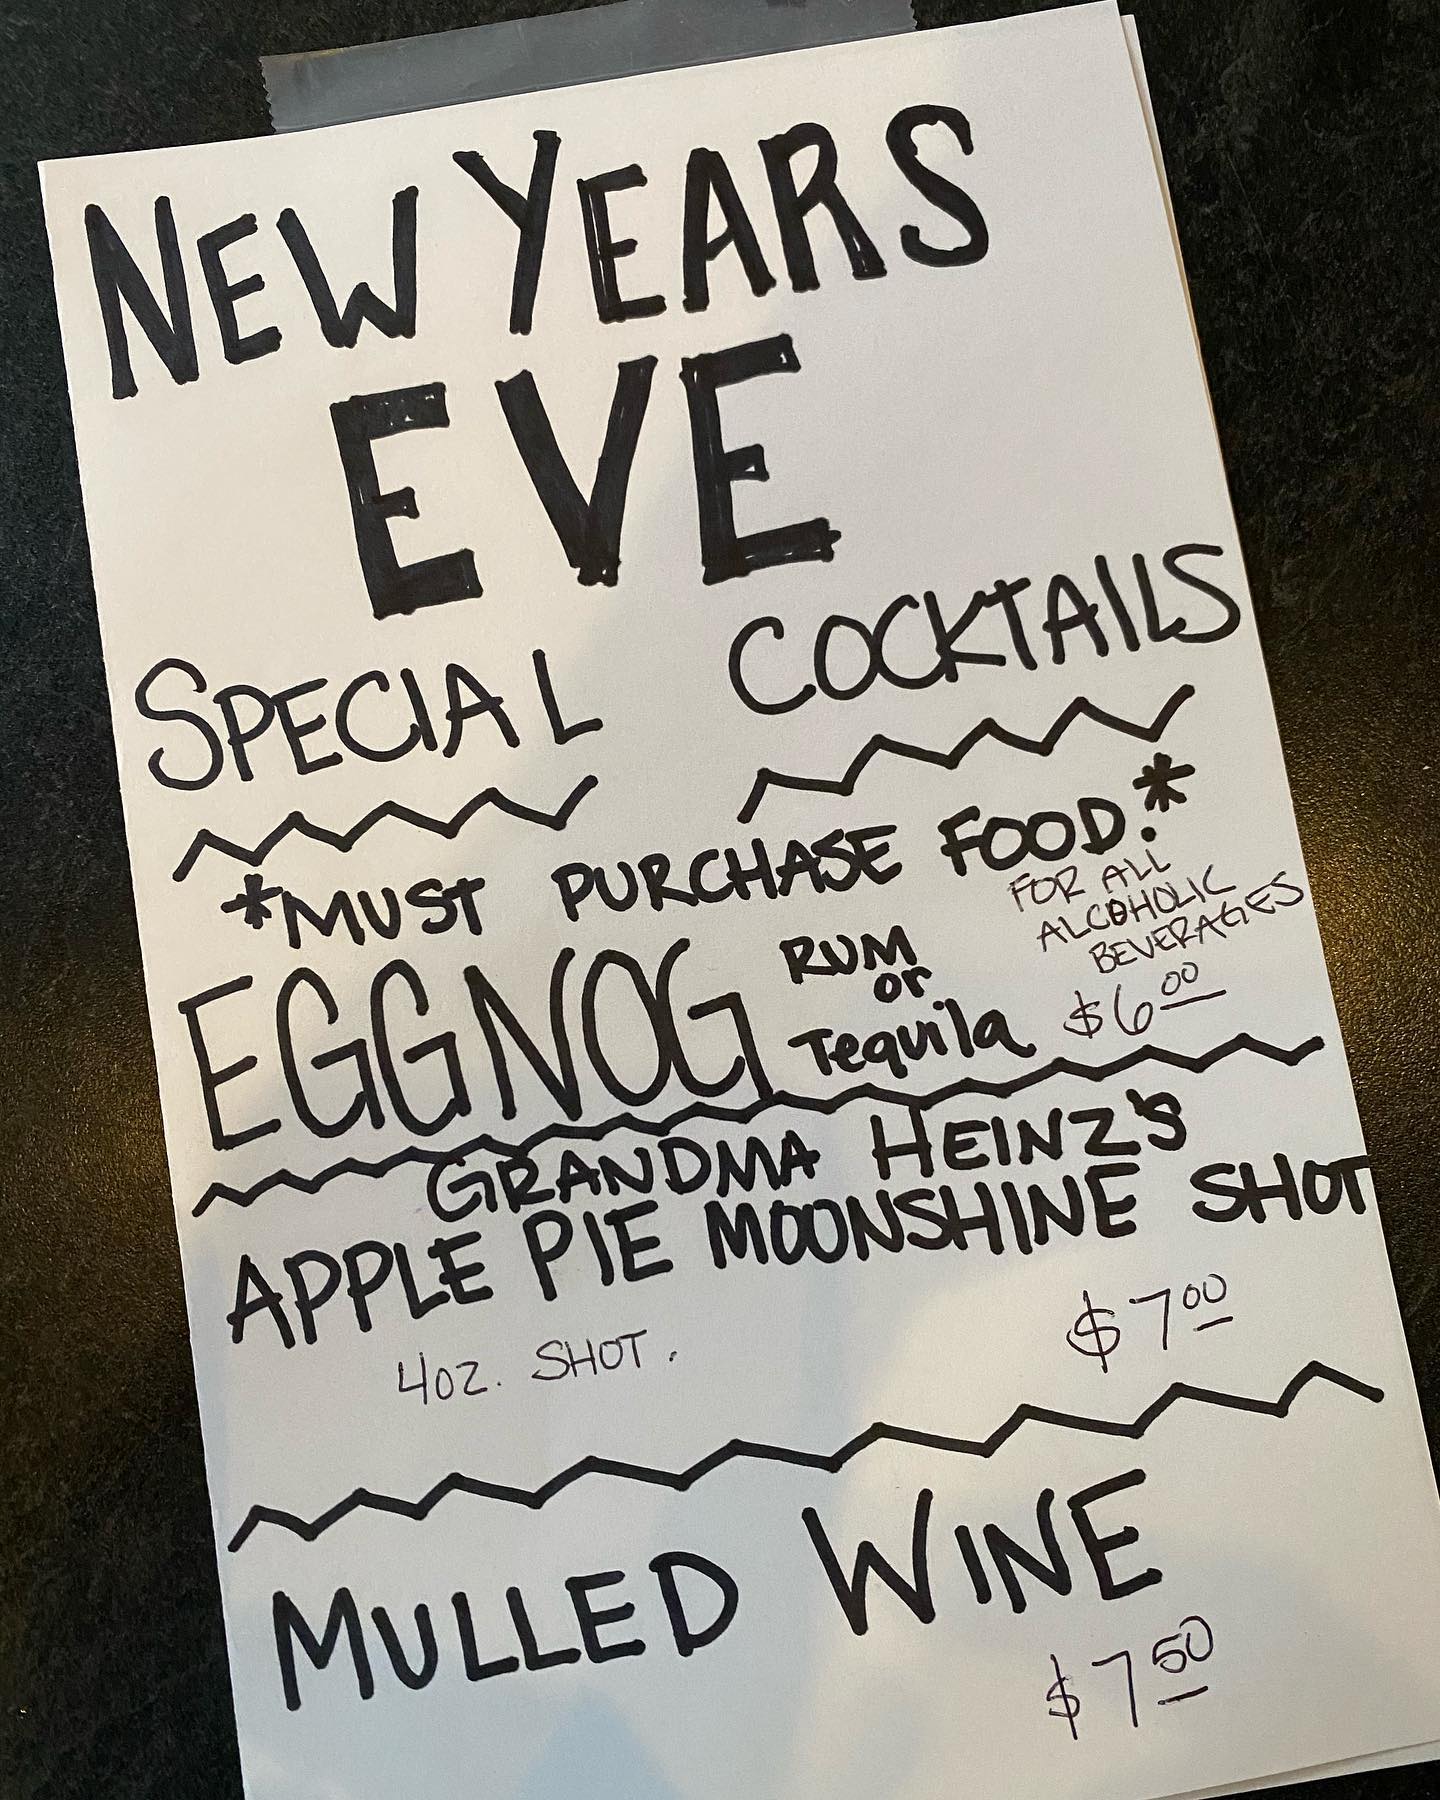 NEW YEARS
EVE
SPECIAL COCKTAILS
*MUST PURCHASE FOOD.*
FOR ALL
ALCOHOLIC
BEVERAGES
EGGNOG RUM
or
Tequila $6.00
GRANDMA HEINZ'S
APPLE PIE MOONSHINE SHOT
4oz. SHOT. $7.00
MULLED WINE
$7.50